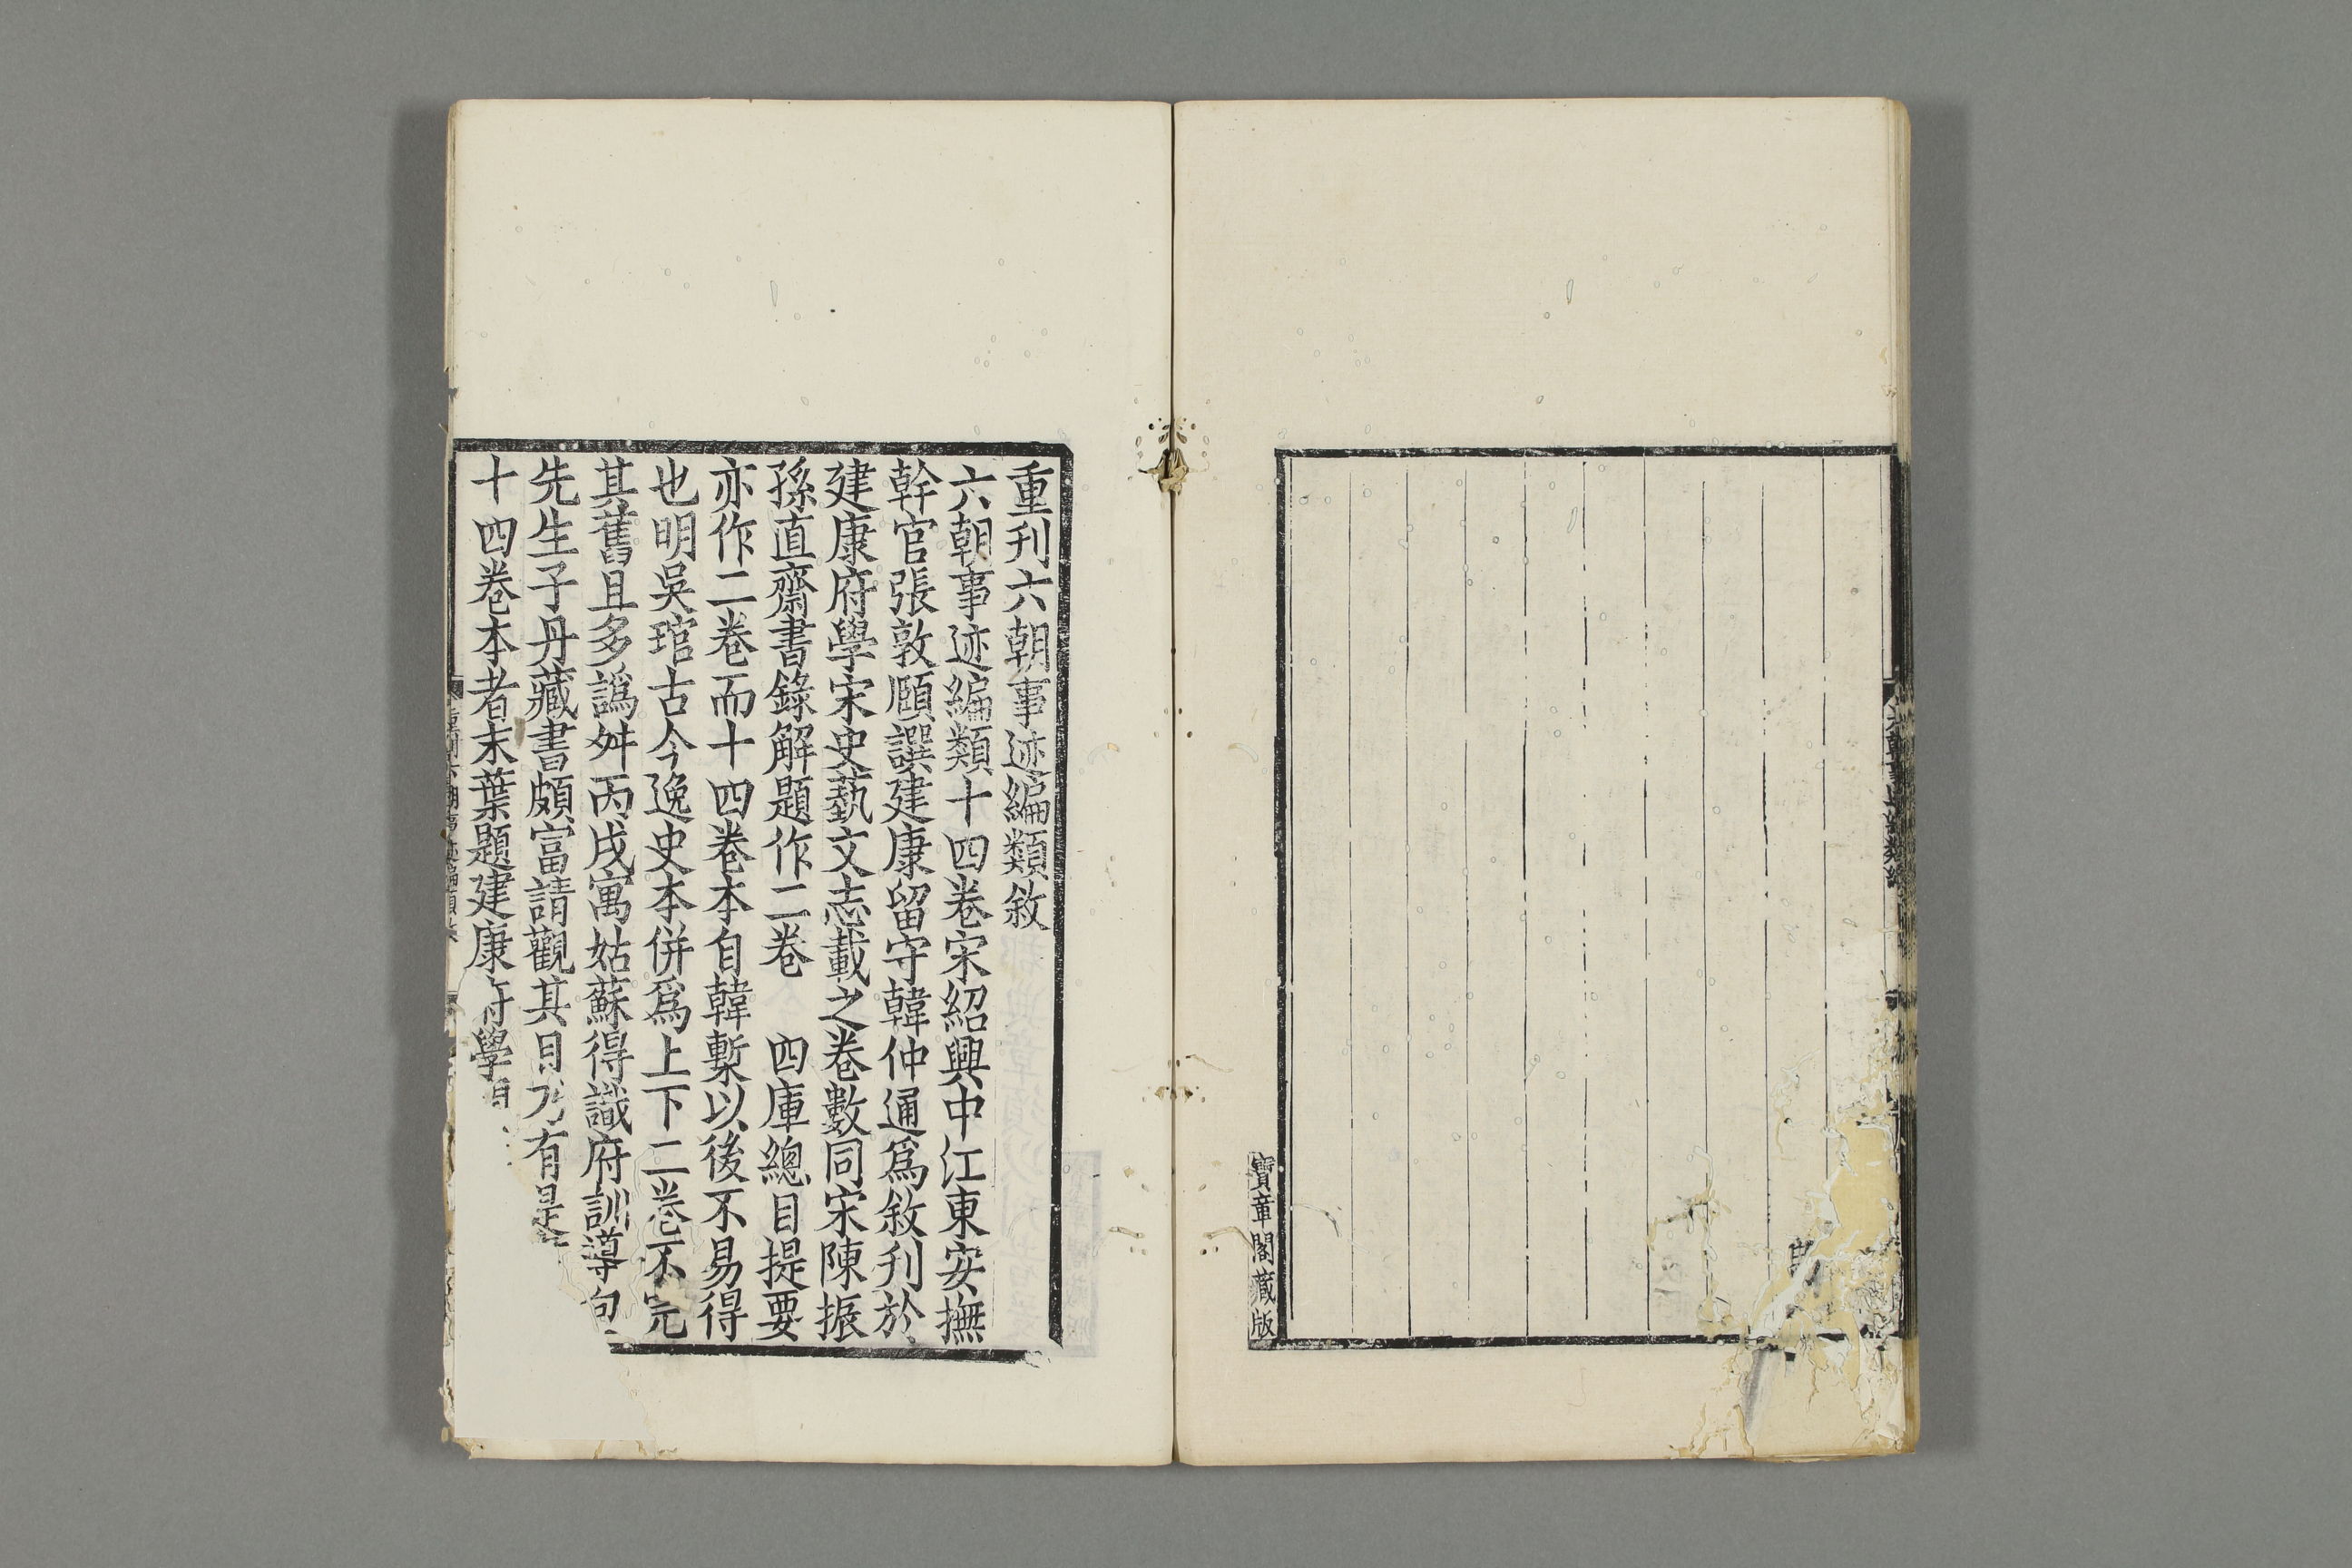 寶章閣藏版
重刊六朝事迹編類敘
六朝事迹編類十四卷宋紹興中江東安撫
幹官張敦頤譔建康留守韓仲通爲敘刋於
建康府學宋史藝文志載之卷數同宋陳振
孫直齋書錄解題作二卷　四庫總目提要
亦作二卷而十四卷本自韓槧以後不易得
也明吳琯古今逸史本併爲上下二卷不完
其舊且多譌舛丙戌寓姑蘇得識府訓導句
先生子丹藏書頗富請觀其目乃有是
十四卷本者末葉題建康府學